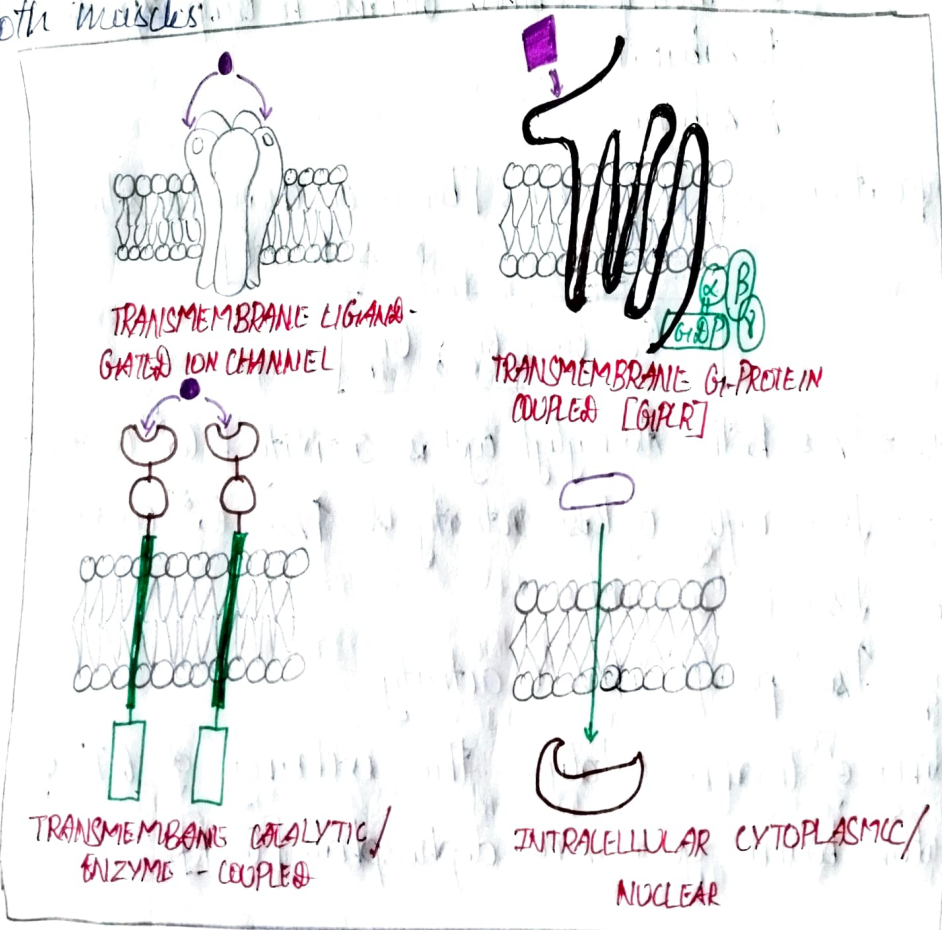 oth muscles.
TRANSMEMBRANE LIGAND-
GATED ION CHANNEL
α
β
γ
GDP
TRANSMEMBRANE G-PROTEIN
COUPLED [GPCR]
TRANSMEMBANE CATALYTIC/
ENZYME - COUPLED
INTRACELLULAR CYTOPLASMIC/
NUCLEAR